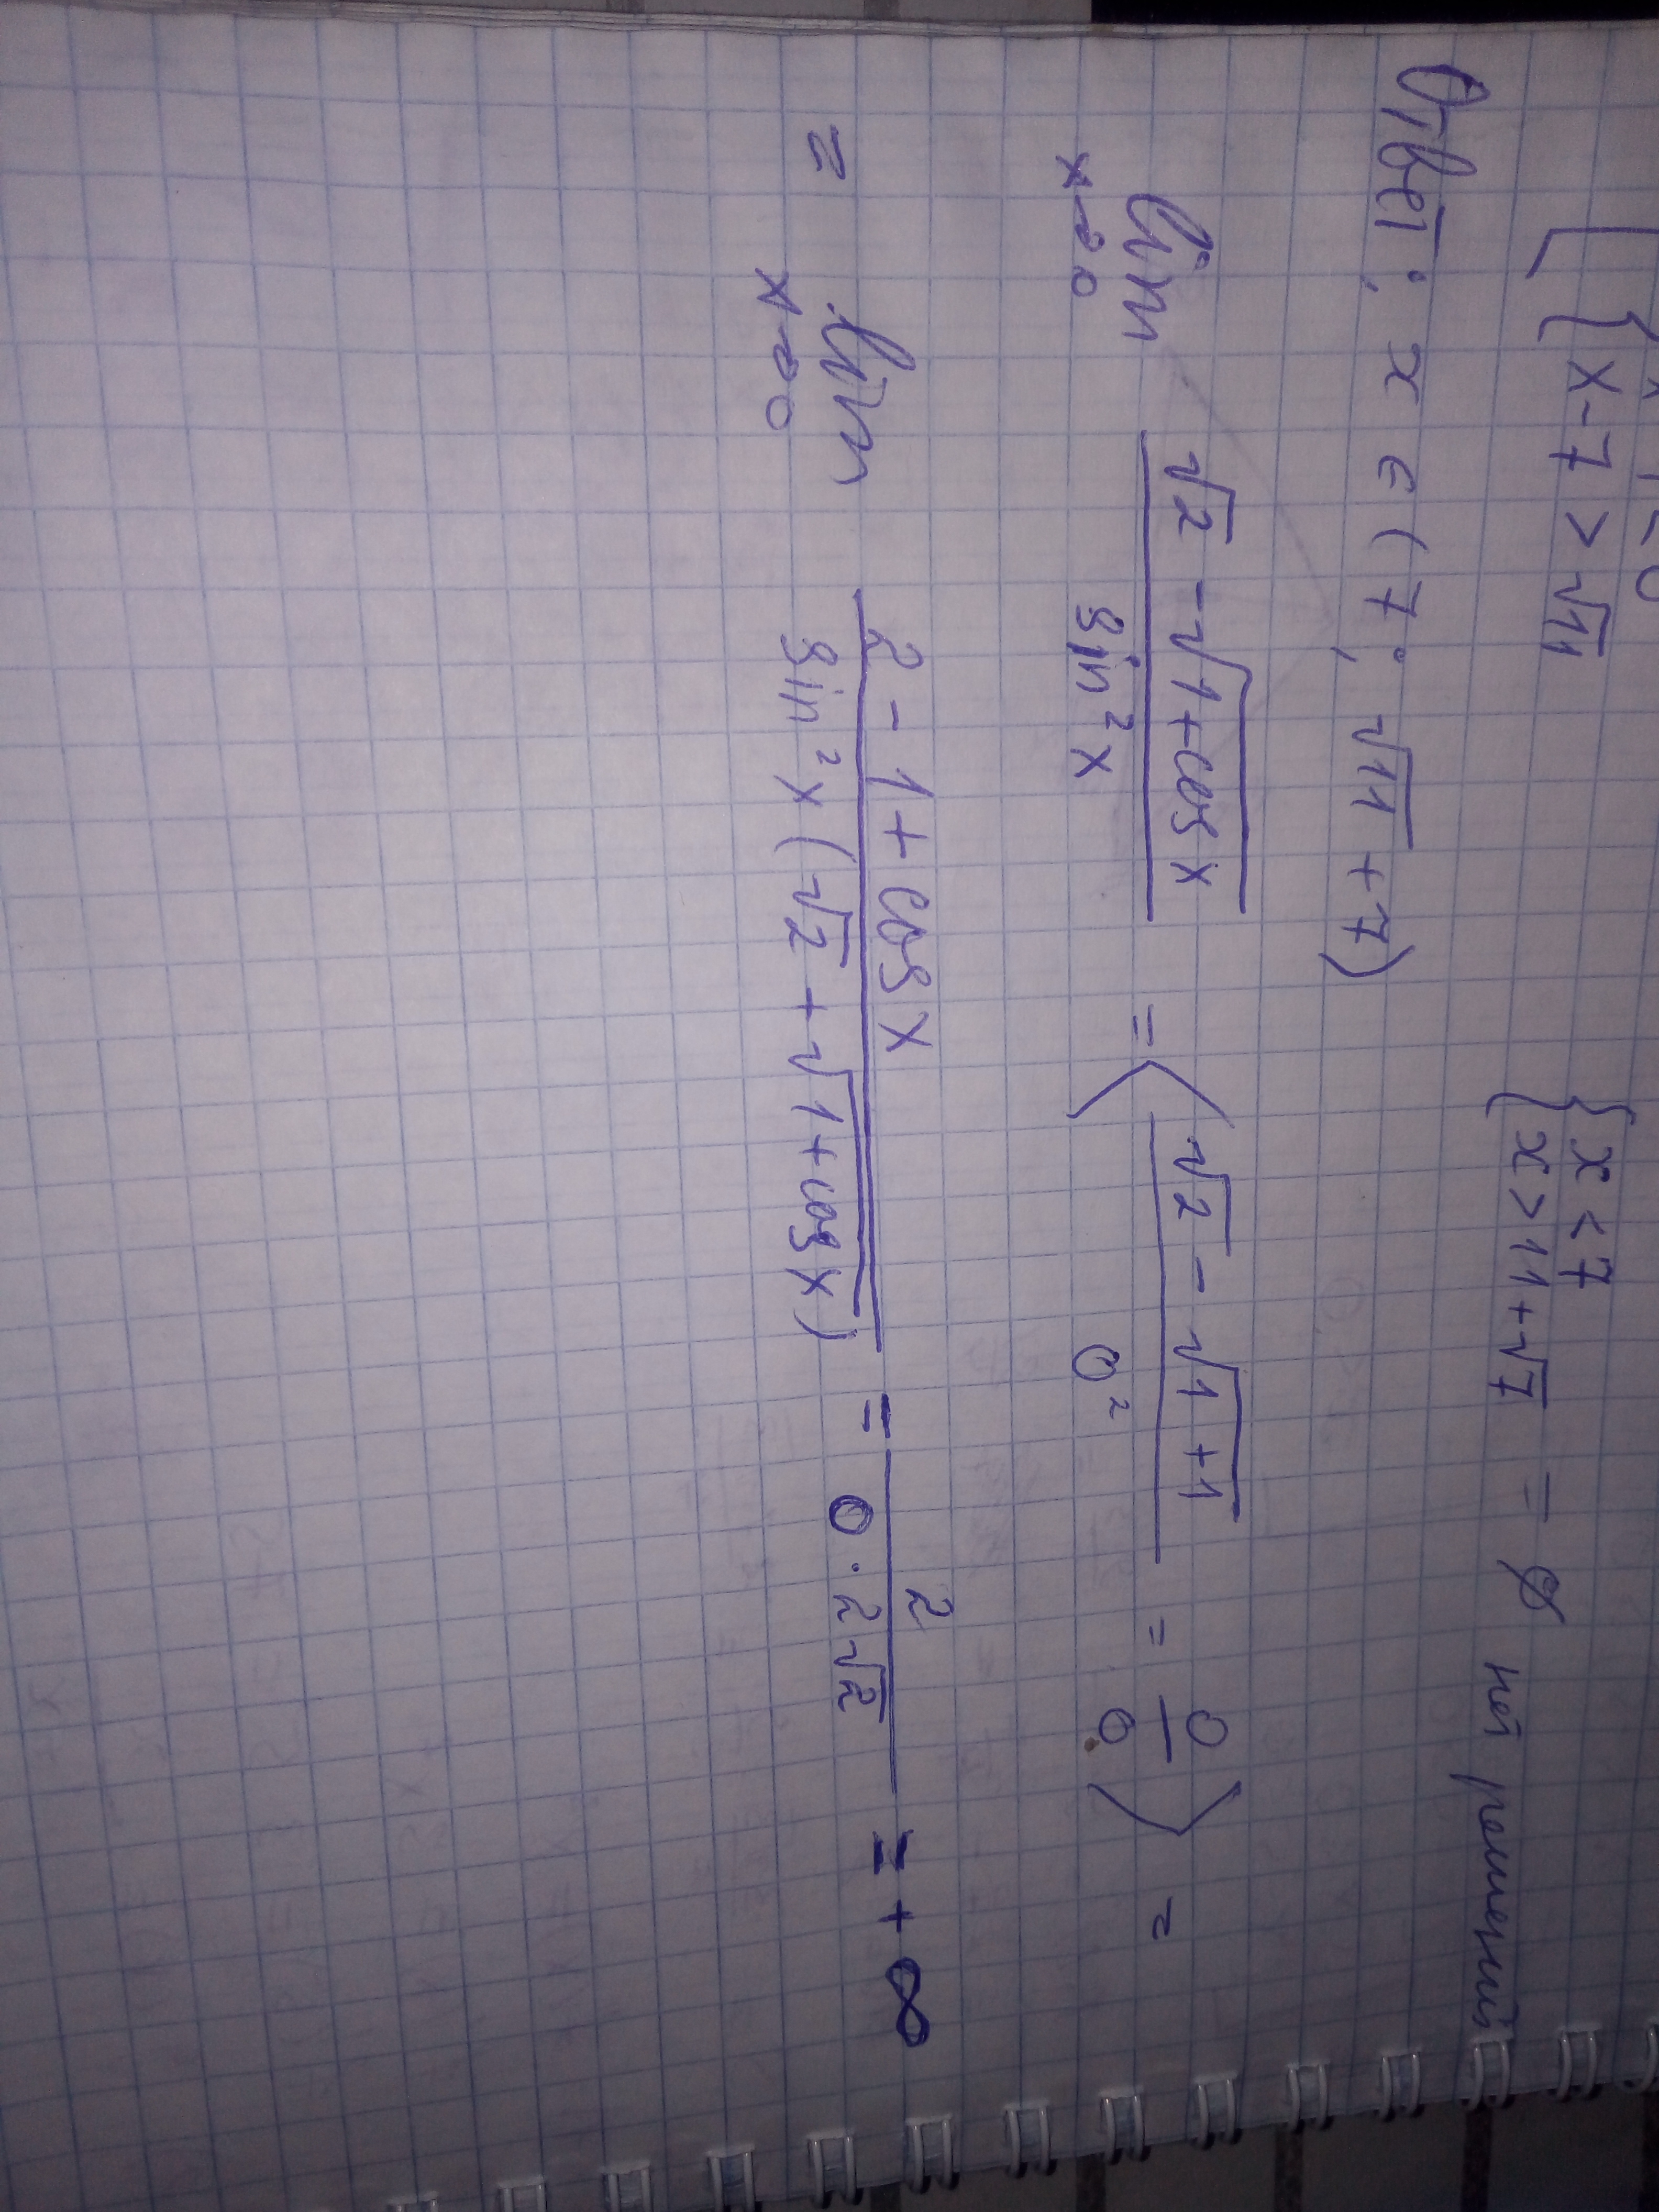 x-7 > √11
{ x < 7
{ x > 11 + √7 = ∅ нет решений
Ответ: x ∈ (7; √11 + 7)
lim x→0 (√2 - √(1+cos x)) / (sin² x) = ( (√2 - √(1+1)) / 0² = 0/0 ) =
= lim x→0 (2 - 1 + cos x) / (sin² x (√2 + √(1+cos x))) = 2 / (0 · 2√2) = +∞